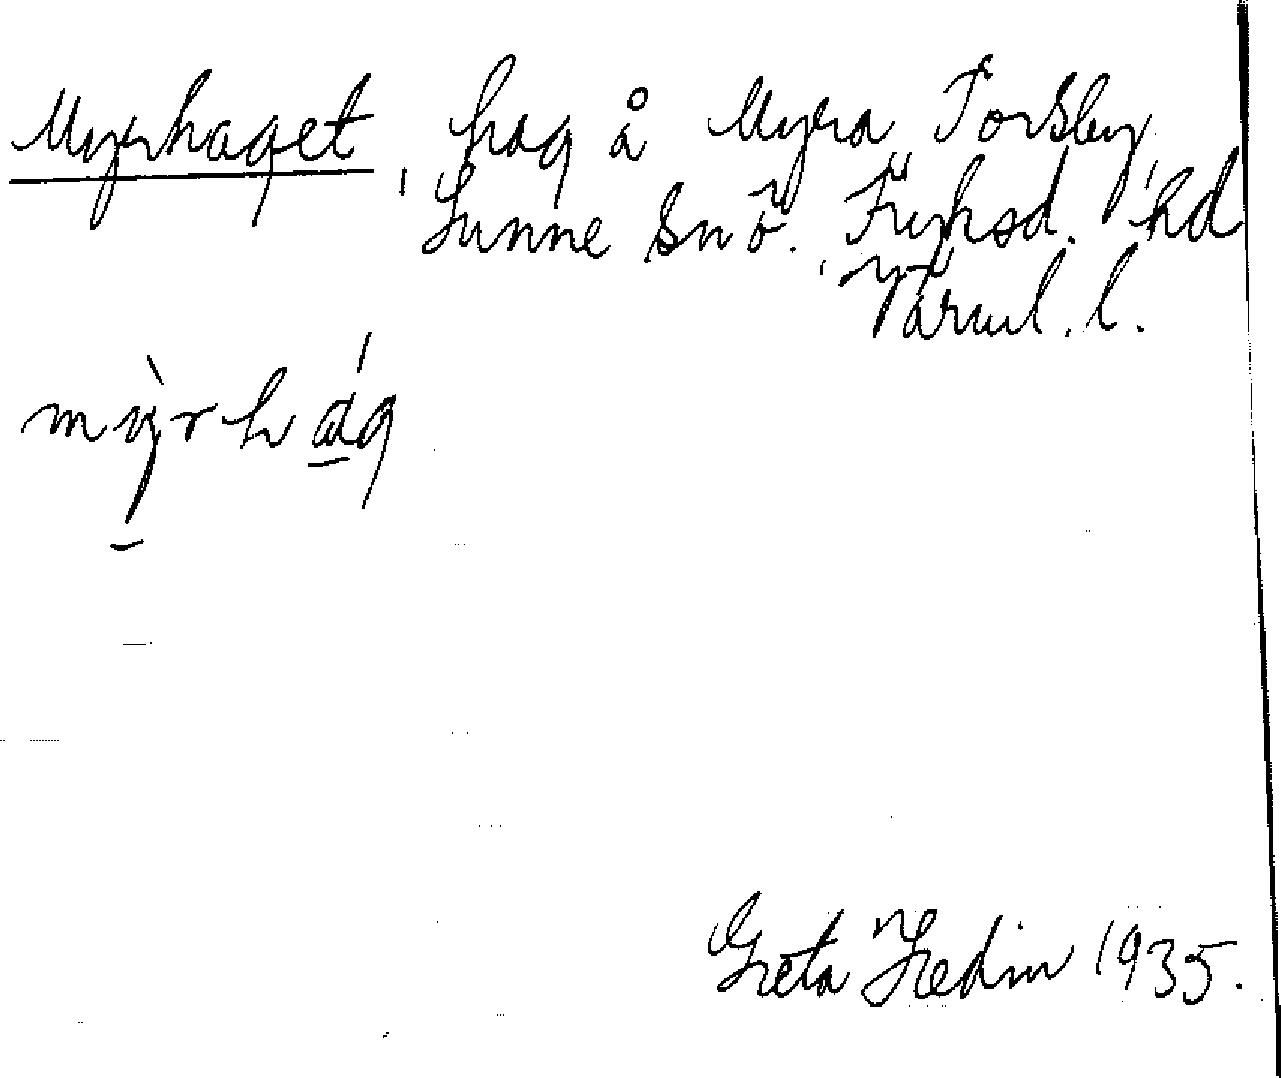 Myrhaget, hag å Myra Torsby,
Sunne sn ö. Fryksd. hd
Värml. l.
mỳrhág
Greta Hedin 1935.